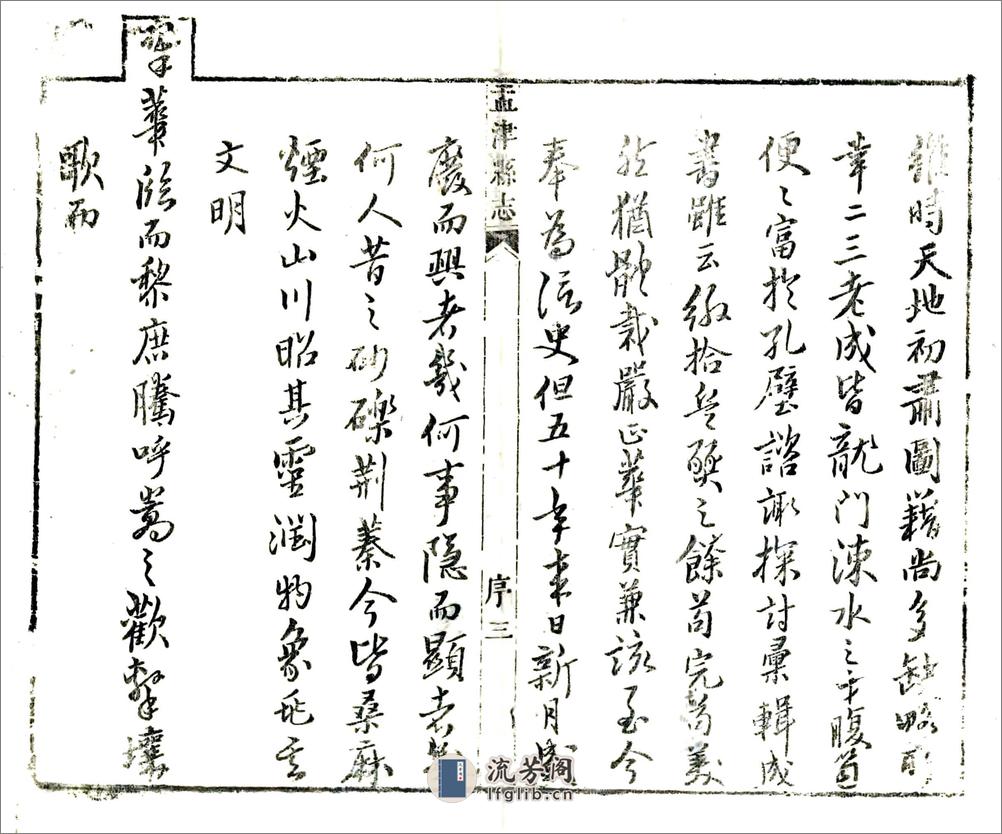 雖時天地初肅圖籍尚多缺略所
幸二三老成皆龍门涑水之手腹笥
便之富於孔璧諮諏探討彙輯成
書雖云綴拾兵燹之餘苟完苟美
然猶體裁嚴正華實兼該至今
奉為信史但五十年来日新月盛
孟津縣志
序 三
廢而興者幾何事隐而顯者幾
何人昔之砂礫荆蓁今皆桑麻
煙火山川昭其靈潤物象
文明
翠華臨而黎庶騰呼嵩之歡擊壤
歌而
流芳阁
lfglib.cn